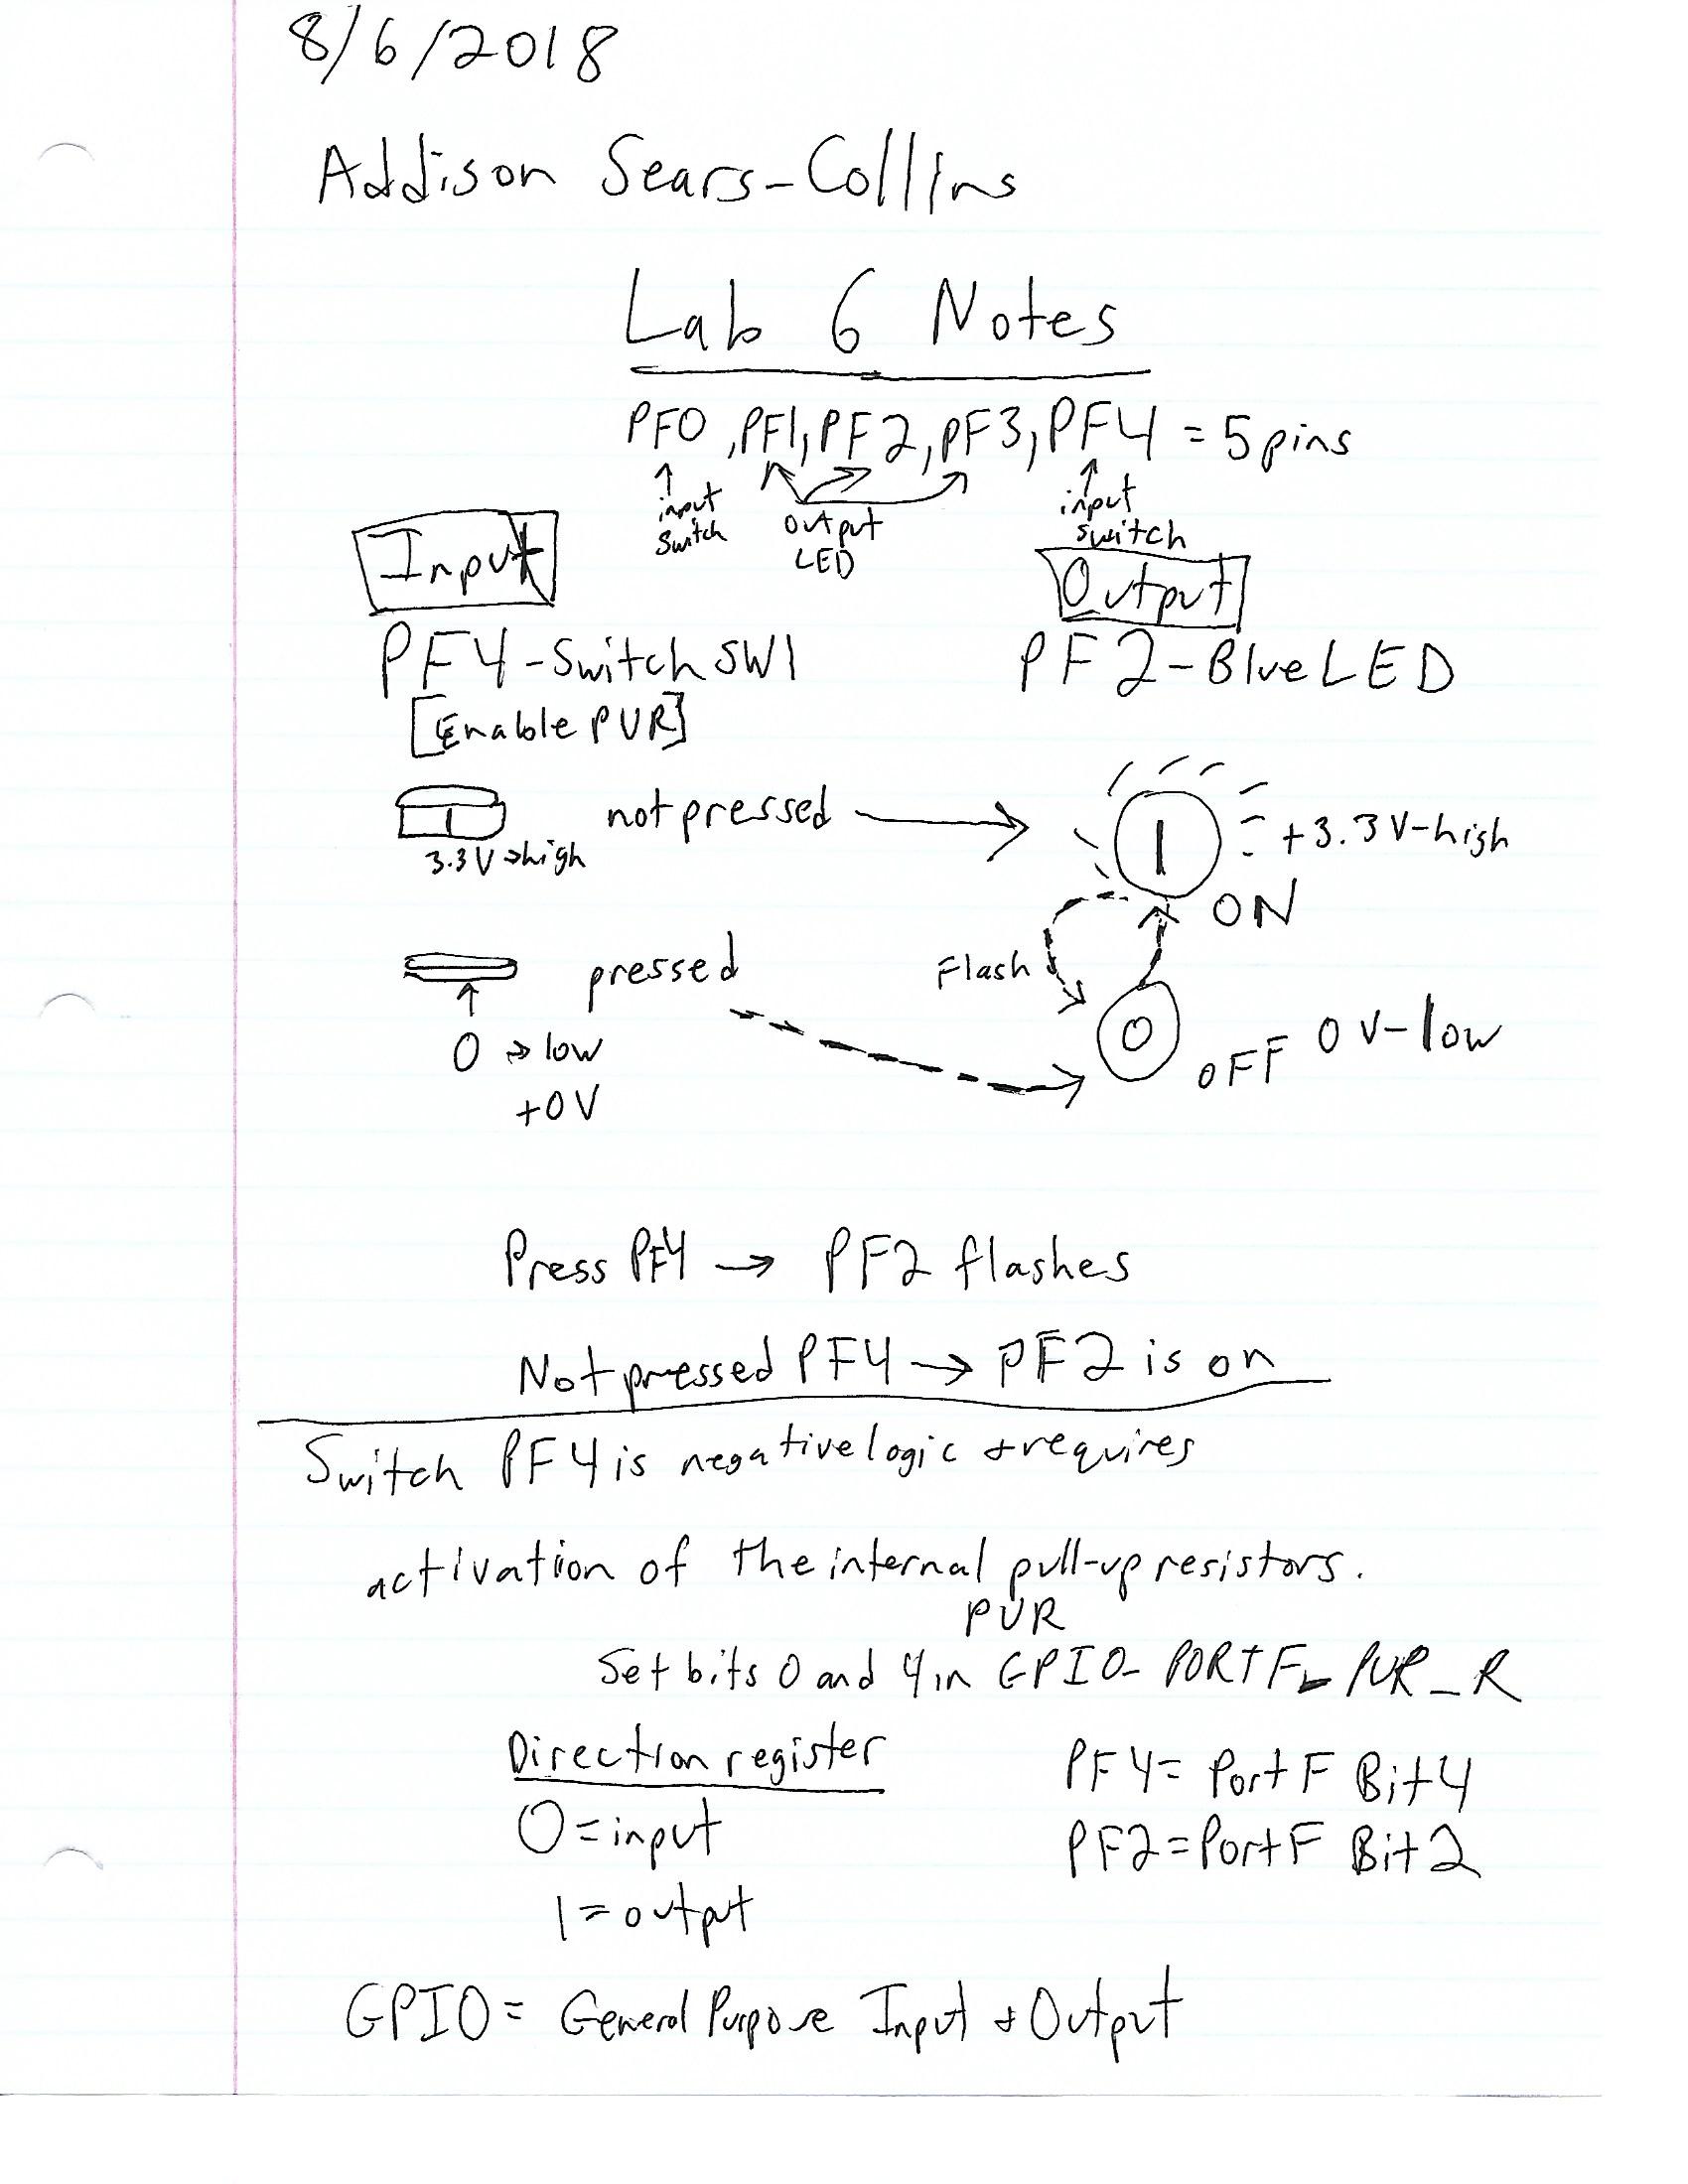 8/6/2018
Addison Sears-Collins
Lab 6 Notes
PF0, PF1, PF2, PF3, PF4 = 5 pins
input switch
output LED
input switch
Input
Output
PF4 - Switch SW1
PF2 - Blue LED
[Enable PUR]
1 not pressed → 1 +3.3V-high
3.3V → high
ON
pressed
Flash
0 → low
+0V
0
OFF 0V-low
Press PF4 → PF2 flashes
Not pressed PF4 → PF2 is on
Switch PF4 is negative logic + requires
activation of the internal pull-up resistors.
PUR
Set bits 0 and 4 in GPIO_PORTF_PUR_R
Direction register
0 = input
1 = output
PF4 = Port F Bit 4
PF2 = Port F Bit 2
GPIO = General Purpose Input + Output